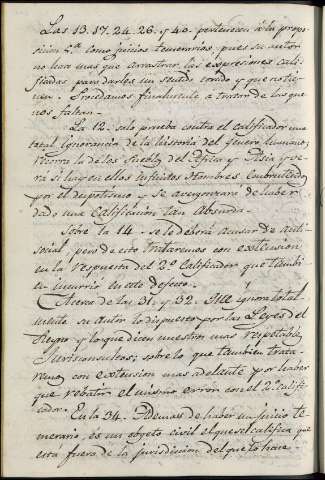 Las 13. 17. 24. 26. y 40. pertenecen à la propo-
sicion 4ª como juicios temerarios, pues su autor
no hace mas que arrastrar las expresiones cali-
ficadas para darles un sentido que no tie-
nen. Procedamos finalmente a tratar de las que
nos faltan.
La 12. solo prueba contra el calificador una
total ignorancia de la historia del genero humano;
recorra la de los Pueblos del Africa y Asia y ve-
rà si hay en ellos infinitos Hombres Embrutecidos
por el despotismo y se avergonzarà de haber
dado una Calificacion tan absurda.
Sobre la 14. se le deberà acusar de Anti-
social, pero de esto trataremos con extension
en la respuesta del 2º Calificador que tambi-
en incurriò en este defecto.
Acerca de las 31. y 32. ignora total-
mente su autor lo dispuesto por las Leyes del
Reyno y lo que dicen nuestros mas respetables
Jurisconsultos; sobre lo que tambien trata-
remos con extension mas adelante por haber
que rebatir el mismo error con el 2º califi-
cador.
En la 34. Ademas de haber un juicio te-
merario, es un objeto civil el que se califica que
està fuera de la jurisdiccion del que lo hace.